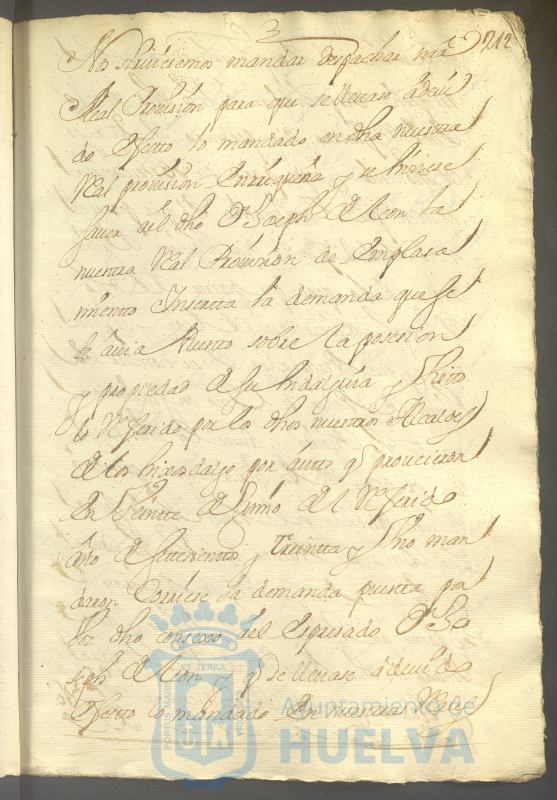 3
212
No sirviesemos mandar despachar nra
Real Provision para que se llevase à devi
do efecto lo mandado en dha nuestra
Real provision Enriqueña y se hiciese
saver al dho Dn Joseph de Leon la
nuestra Real Provision de Emplasa
miento Inserta la demanda que se
le avia puesto sobre la posesion
y propiedad de su hidalguia y Visto
lo referido por los dhos nuestros Alcaldes
de los hijosdalgo por auto q proveieron
en Veinte de Junio del referido
año de setecientos y treinta y uno man
daron Corriese la demanda puesta por
por dho consexo al Espresado Dn Jo
seph de Leon y q se llevase à devido
efecto lo mandado en nuestra Real
Ayuntamiento de
HUELVA